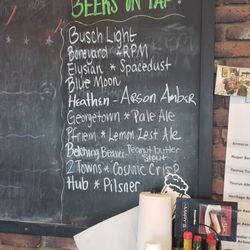 BEERS ON TAP!
Busch Light
Boneyard * RPM
Elysian * Spacedust
Blue Moon
Heathen - Arson Amber
Georgetown * Pale Ale
Pfriem * Lemon Zest Ale
Belching Beaver * Peanut butter
Stout
2 Towns * Cosmic Crisp
Hub * Pilsner